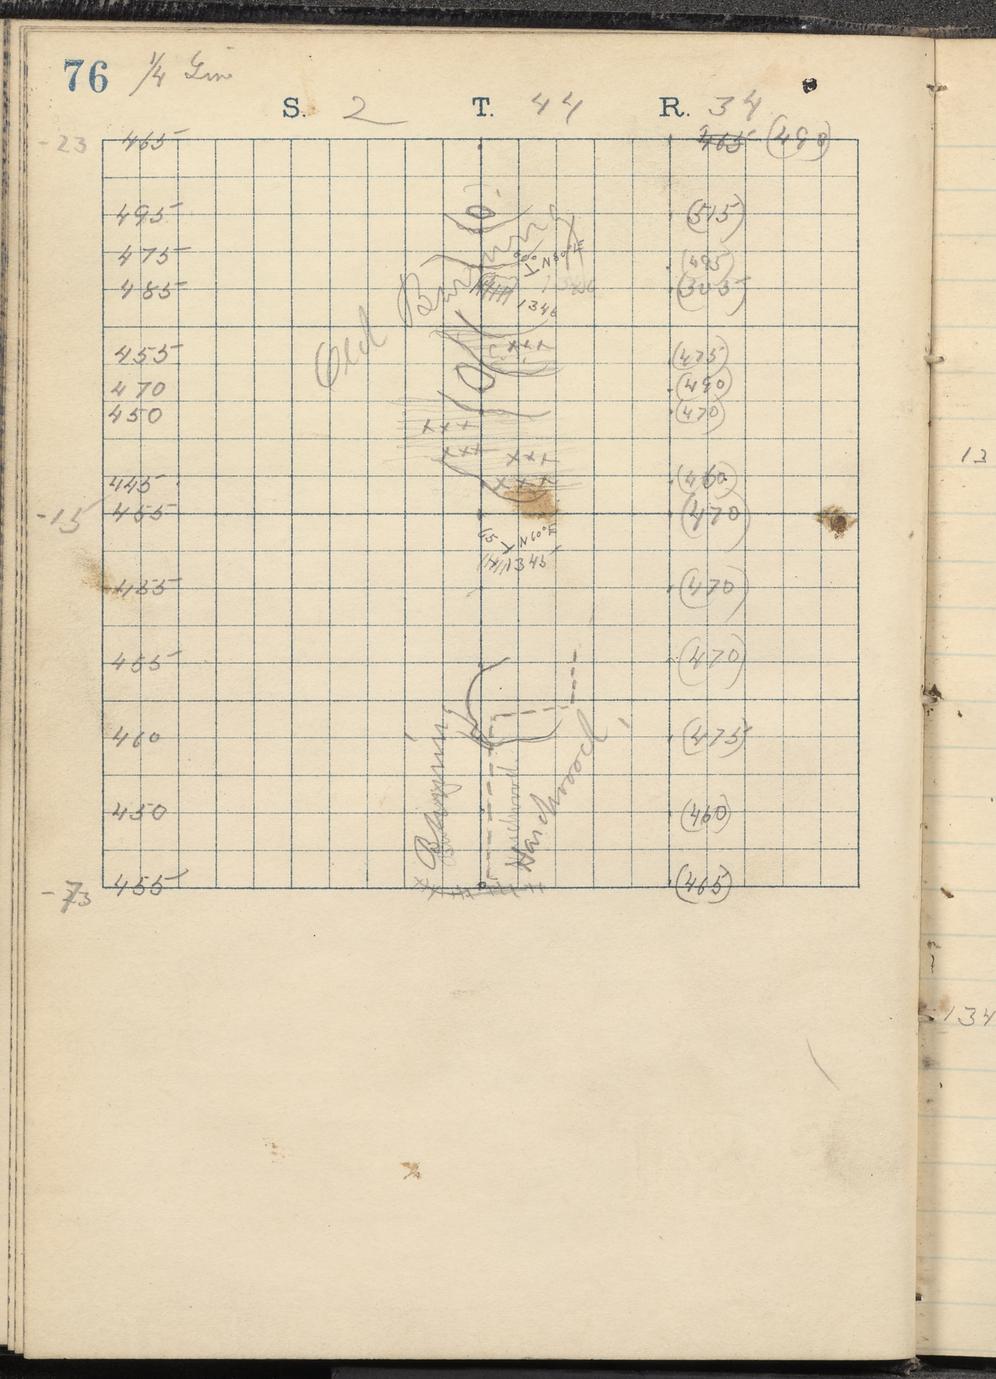 76 1/4 Line
S. 2 T. 44 R. 34
-23 465 465 (498)
495 (515)
475 (495)
N80°E
485 (505)
1346
Old Burning
455 (475)
470 (490)
450 (470)
445 (460)
-15 455 (470)
65 N60°E
1345
455 (470)
455 (470)
460 (475)
Burning
Hardwood
Hardwood
450 (460)
-73 455 (465)
13
134